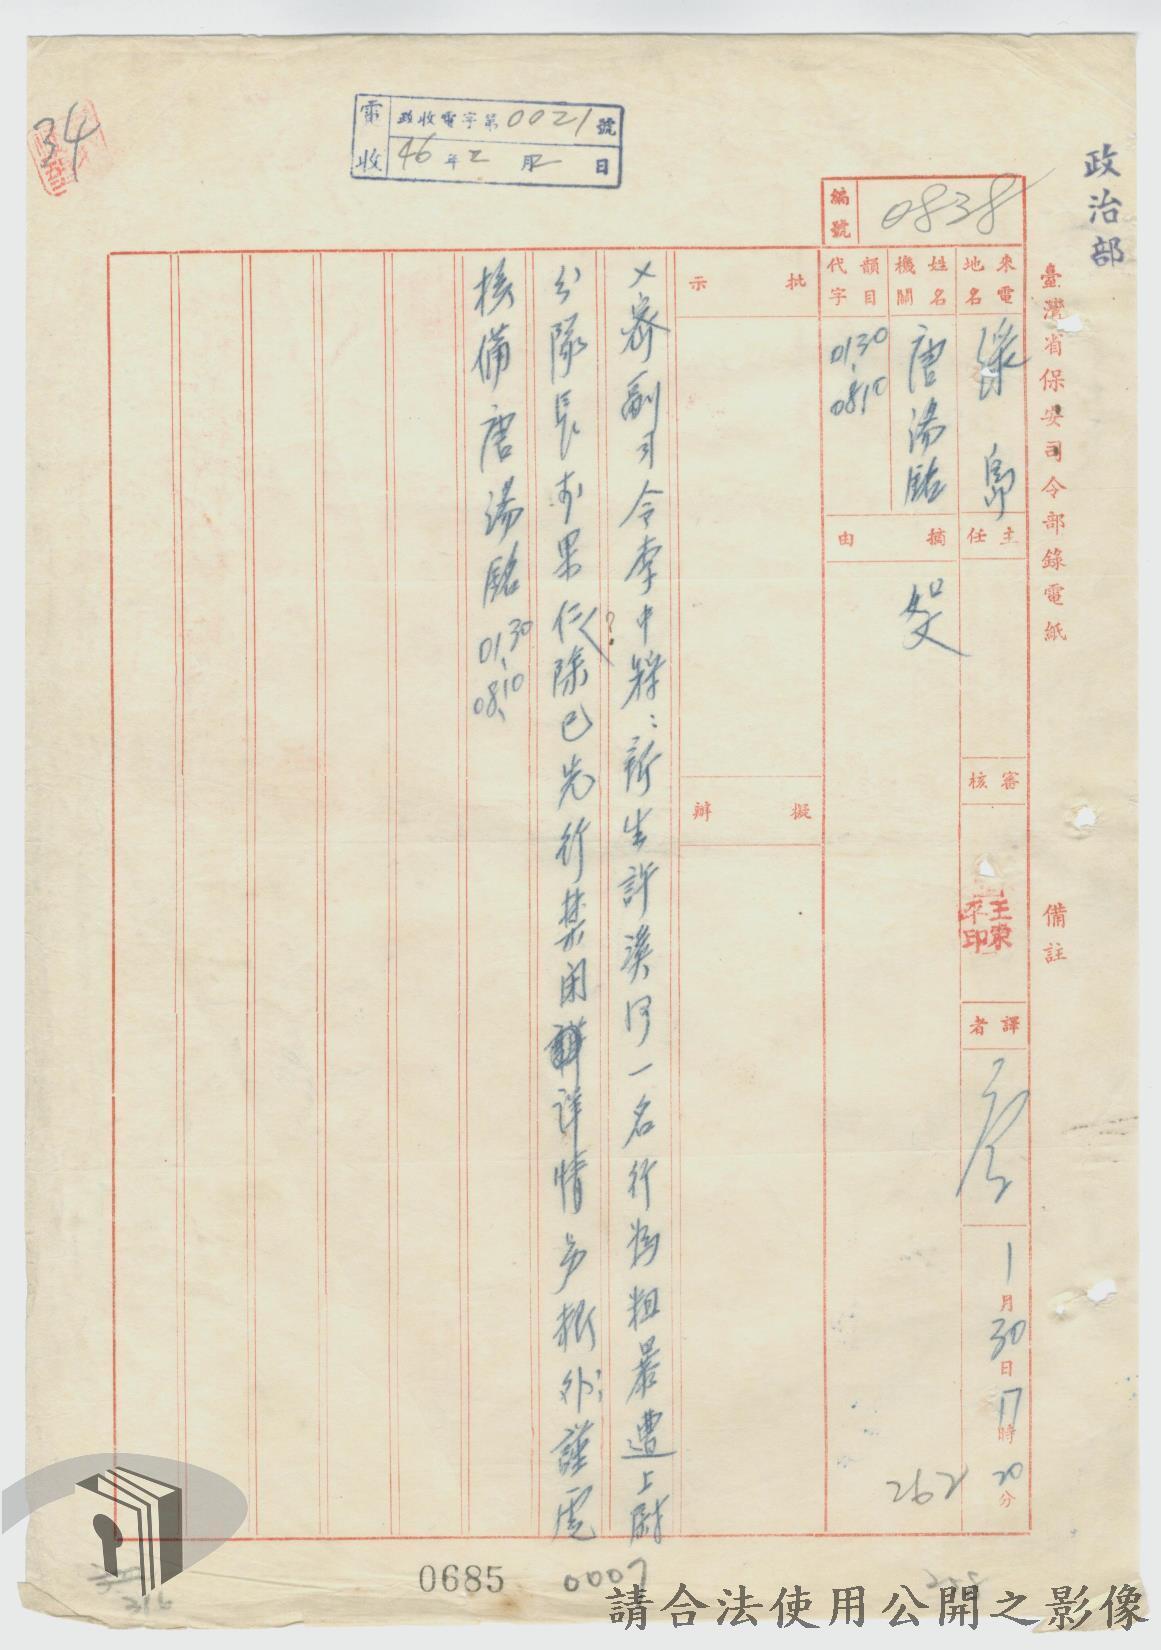 政治部
臺灣省保安司令部錄電紙
備註
電收
政收電字第0021號
46年2月2日
34
編號 0838
來電地名 綠島
姓名機關 唐湯銘
韻目代字 0130、0810
主任
摘由
審核
王東平印
譯者
1月30日17時20分
262
批示
擬辦
副司令李中將:新生許漢河一名行為粗暴遭上尉
分隊長
除已先行禁閉
詳情另報外謹電
核備唐湯銘0130、0810
0685
0007
請合法使用公開之影像